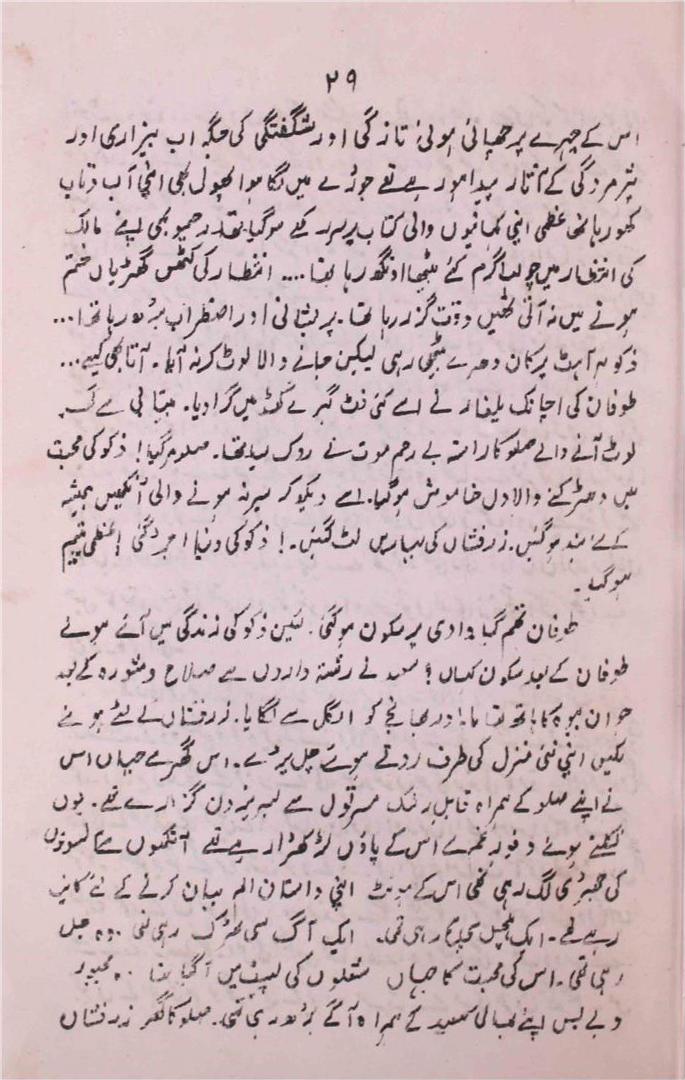 ۲۹
اس کے چہرے پر چھپائی ہوئی تازگی اور شگفتگی کی جگہ اب بیزاری اور
پژمردگی کے آثار پیدا ہو رہے تھے جوڑے میں لگا ہوا پھول بھی اپنی آب و تاب
کھو رہا تھا عظمی اپنی کہانیوں والی کتاب پر سر رکھے سو گیا تھا۔ رحیمو بھی اپنے مالک
کی انتظار میں چولہا گرم کئے بیٹھا اونگھ رہا تھا .... انتظار کی کٹھن گھڑیاں ختم
ہونے میں نہ آتی تھیں وقت گزر رہا تھا۔ پریشانی اور اضطراب بڑھ رہا تھا ...
ذکو ہر آہٹ پر کان دھرے بیٹھی رہی لیکن جانے والا لوٹ کر نہ آیا۔ آتا بھی کیسے ...
طوفان کی اچانک یلغار نے اسے کئی فٹ گہرے کھڈ میں گرا دیا۔ بیتابی سے
لوٹ آنے والے صلو کا راستہ بے رحم موت نے روک لیا تھا۔ صلو مر گیا! ذکو کی محبت
میں دھڑکنے والا دل خاموش ہو گیا۔ اسے دیکھ کر سیر نہ ہونے والی آنکھیں ہمیشہ
کے لئے بند ہو گئیں۔ زرفشاں کی بہاریں لٹ گئیں۔! ذکو کی دنیا اجڑ گئی! عظمی یتیم
ہو گیا۔
طوفان تھم گیا وادی پر سکون ہو گئی۔ لیکن ذکو کی زندگی میں آئے ہوئے
طوفان کے بعد سکون کہاں؟ سعید نے رشتہ داروں سے صلاح و مشورہ کے بعد
جوان بیوہ کا ہاتھ تھاما۔ اور بھانجے کو گلے سے لگایا۔ زرفشاں کے لٹے ہوئے
مکیں اپنی نئی منزل کی طرف روتے ہوئے چل پڑے۔ اس گھر سے جہاں اس
نے اپنے صلو کے ہمراہ قابل رشک مسرتوں سے لبریز دن گزارے تھے۔ یوں
نکلتے ہوئے وفور غم سے اس کے پاؤں لڑکھڑا رہے تھے آنکھوں سے آنسوؤں
کی جھڑی لگ رہی تھی اس کے ہونٹ اپنی داستان الم بیان کرنے کے لئے کانپ
رہے تھے۔ ایک ہلچل سی مچ رہی تھی۔ ایک آگ سی بھڑک رہی تھی۔ وہ جل
رہی تھی۔ اس کی محبت کا جہاں شعلوں کی لپیٹ میں آ گیا تھا۔ وہ مجبور
و بے بس اپنے بھائی سعید کے ہمراہ آگے بڑھ رہی تھی۔ صلو کا گھر زرفشاں